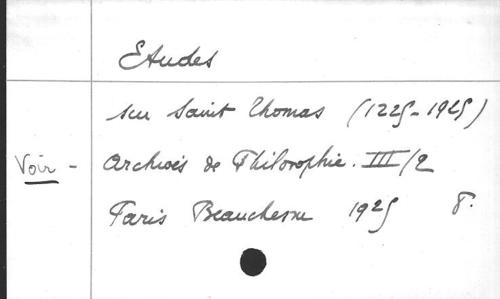 Etudes
sur Saint Thomas (1225-1925)
Voir - Archives de Philosophie. III/2
Paris Beauchesne 1925 8.